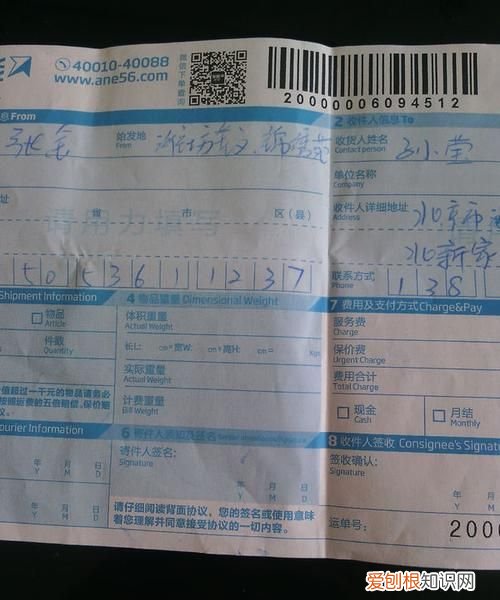 40010-40088
www.ane56.com
微信下单查询
20000006094512
息 From
始发地
From
2 收件人信息To
收货人姓名
Contact person
单位名称
Company
省 市 区(县)
请用力填写
收件人详细地址
Address
北京市
北新家
5 0 5 3 6 1 1 2 3 7
联系方式
Phone
1 3 8
Shipment Information
物品
Article
件数
Quantity
4 物品重量 Dimensional Weight
体积重量
Actual Weight
长L: cm×宽W: cm×高H: cm= Kgs
实际重量
Actual Weight
计费重量
Bill Weight
7 费用及支付方式Charge&Pay
服务费
Charge
保价费
Urgent Charge
费用合计
Total Charge
现金
Cash
月结
Monthly
价值超过一千元的物品请务必
按照运费的五倍赔偿,保价赔
议。
ourier Information
年 月 日
Y M D
年 月 日
Y M D
寄件人签名:
Signature
年 月 日
Y M D
请仔细阅读背面协议,您的签名或使用意味
着您理解并同意接受协议的一切内容。
8 收件人签收 Consignee's Signat
签收确认:
Signature
年
Y
运单号:
2000
爱刨根知识网